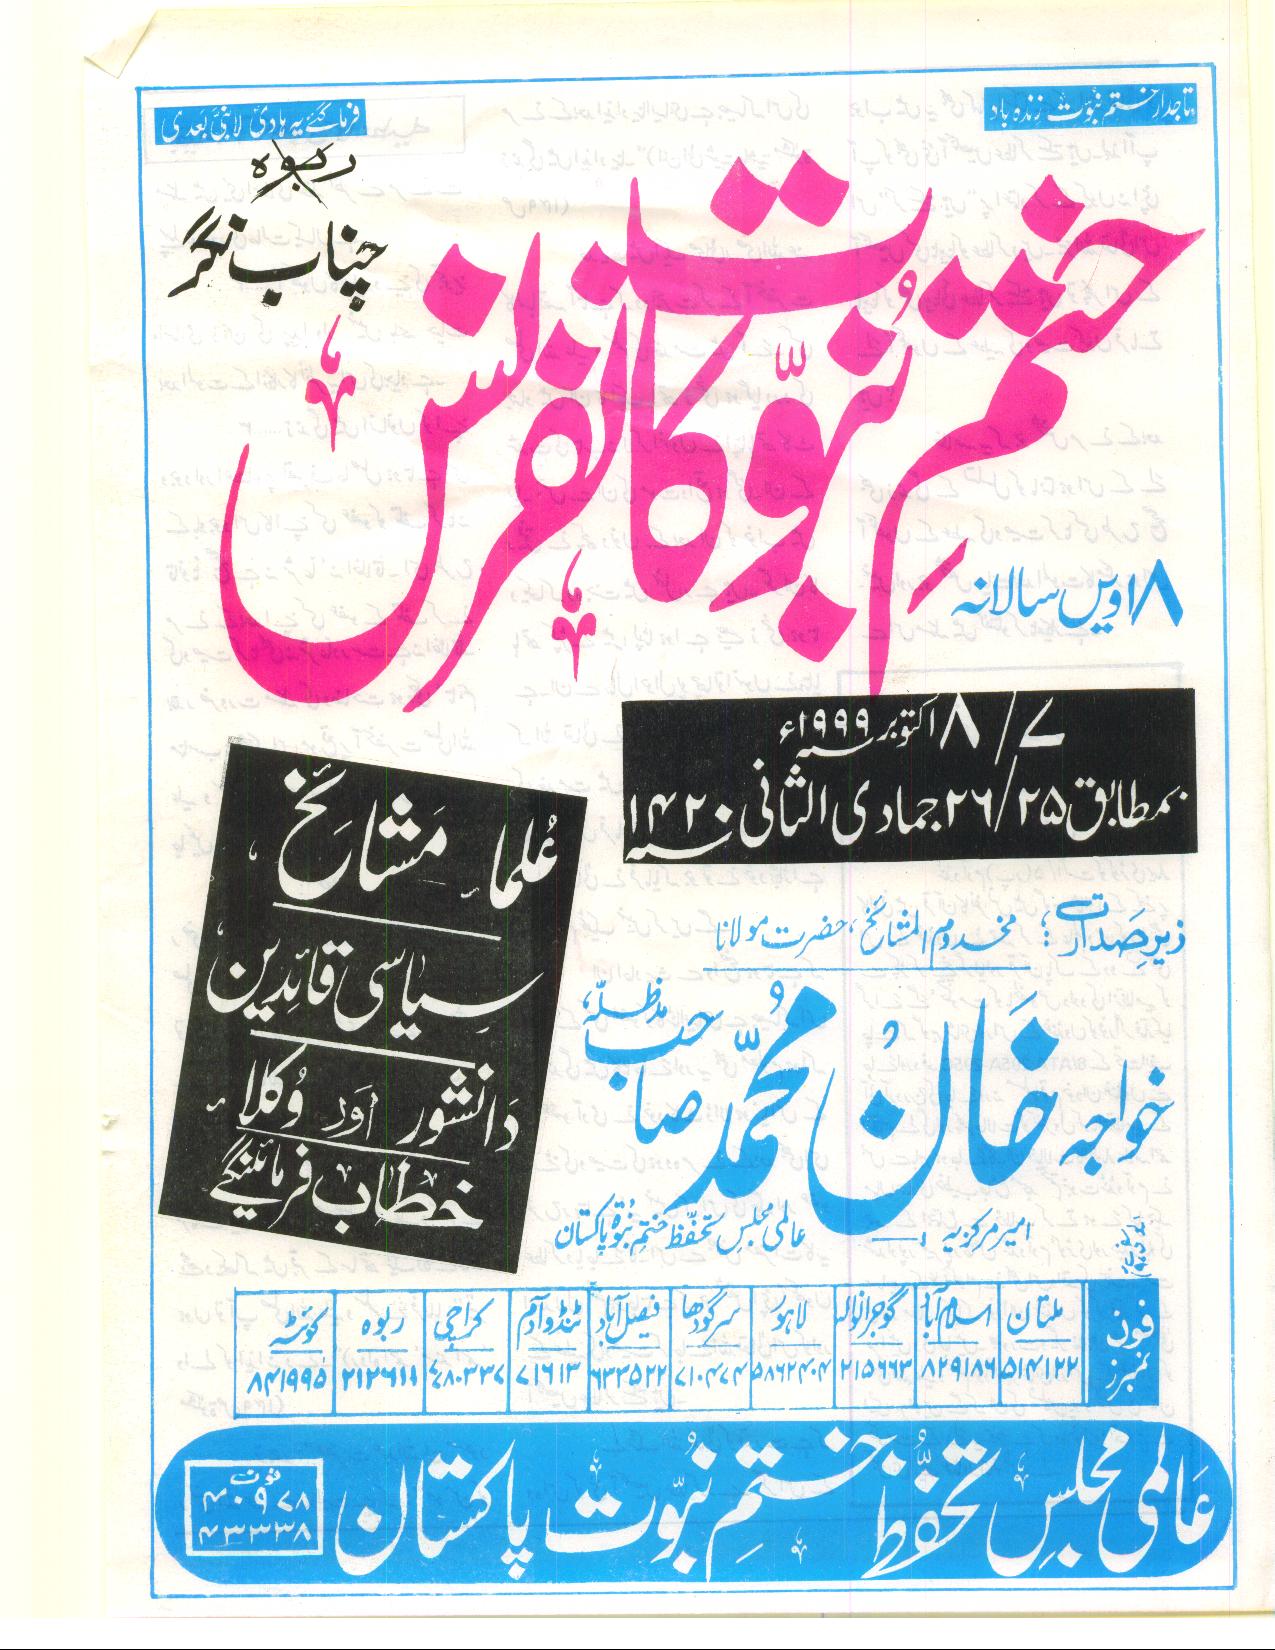 تاجدار ختم نبوت زندہ باد
فرما گئے یہ ہادی لا نبی بعدی
ربوہ
چناب نگر
ختم نبوّت کانفرنس
۱۸ویں سالانہ
۷/۸ اکتوبر ۱۹۹۹ء
بمطابق ۲۵/۲۶ جمادی الثانی ۱۴۲۰
علماء مشائخ
سیاسی قائدین
دانشور اور وکلاء
خطاب فرمائینگے
زیر صدارت: مخدوم المشائخ، حضرت مولانا
خواجہ خان محمّد صاحب مدظلہ،
امیر مرکزیہ عالمی مجلس تحفّظ ختم نبوۃ پاکستان
فون نمبرز
ملتان ۵۱۴۱۲۲
اسلام آباد ۸۲۹۱۸۶
گوجرانوالہ ۲۱۵۶۶۳
لاہور ۵۸۶۲۴۰۴
سرگودھا ۷۱۰۴۷۴
فیصل آباد ۶۳۳۵۲۲
ٹنڈو آدم ۷۱۶۱۳
کراچی ۷۷۸۰۳۳۷
ربوہ ۲۱۲۶۱۱
کوئٹہ ۸۴۱۹۹۵
عالمی مجلس تحفّظ ختم نبوّت پاکستان
فون
۴۰۹۷۸
۴۳۳۳۸